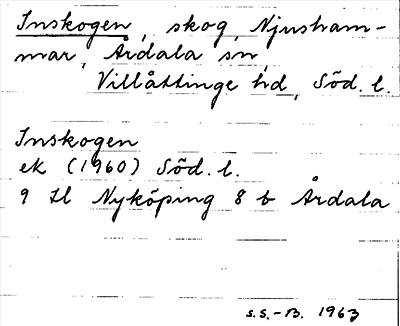 Inskogen, skog, Njursham-
mar, Årdala sn,
Villåttinge hd, Söd. l.
Inskogen
ek (1960) Söd. l.
9 H Nyköping 8 b Årdala
S.S.-B. 1963